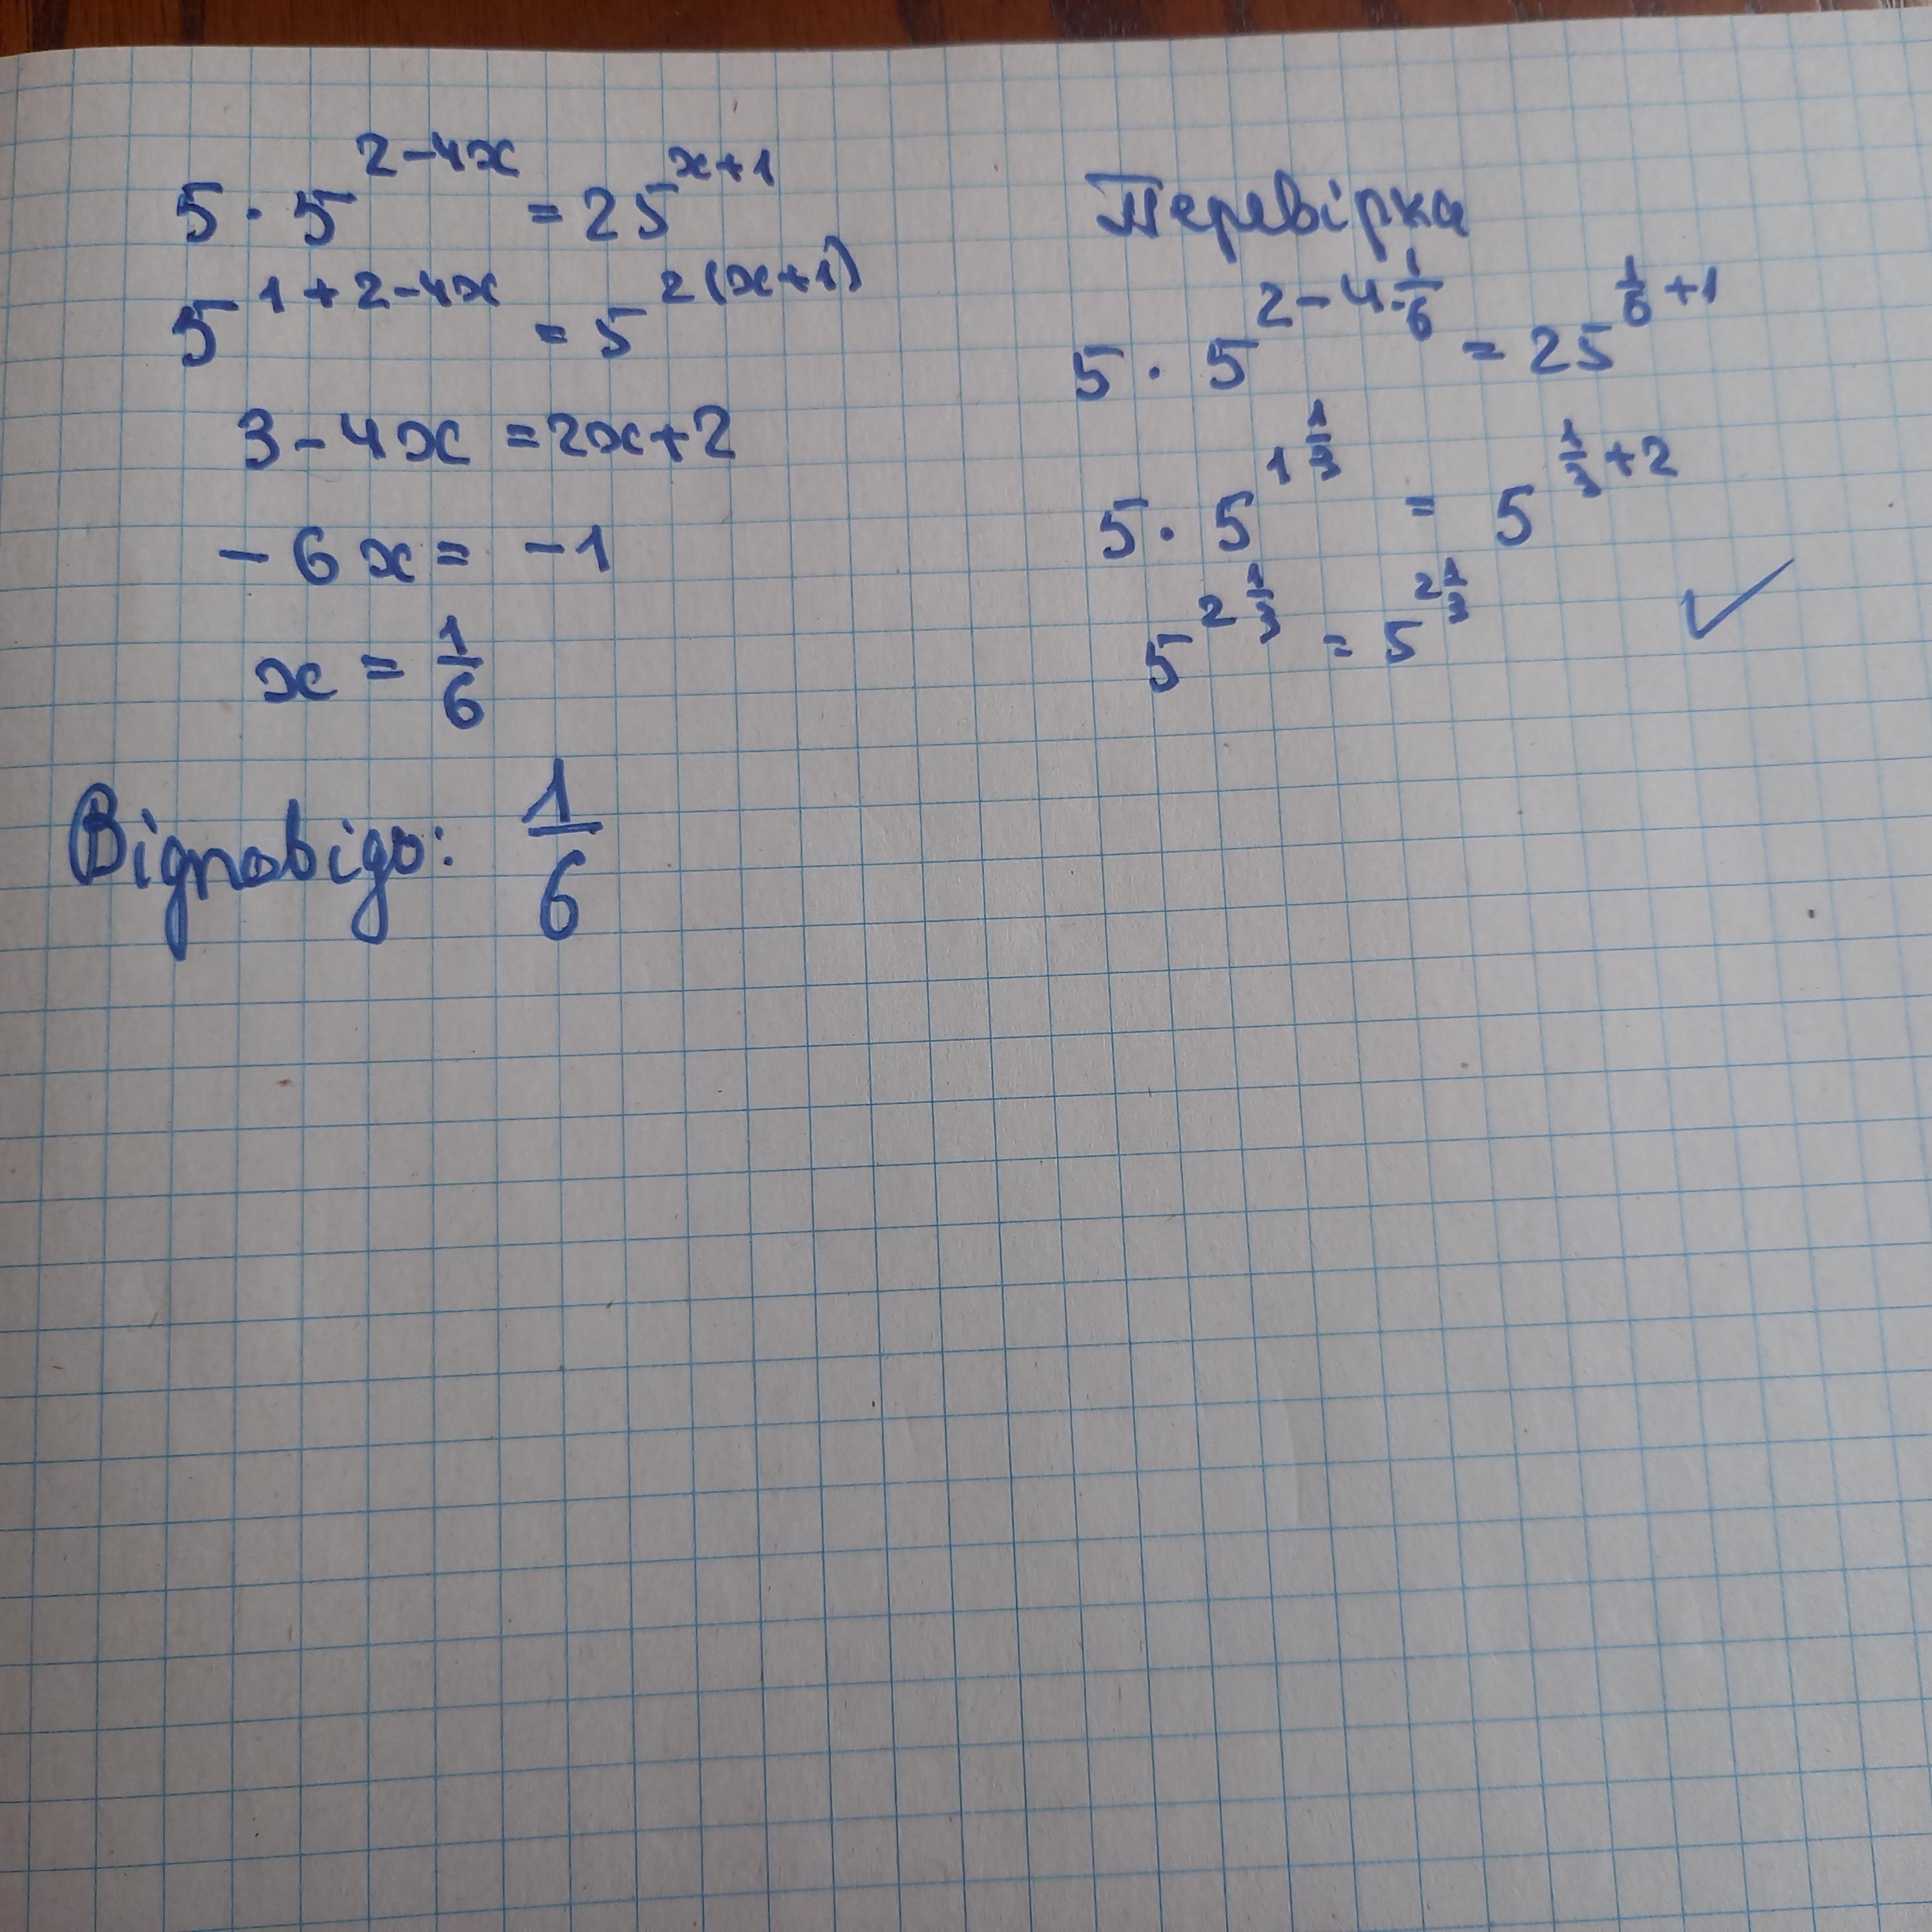 5 · 5^{2-4x} = 25^{x+1}
5^{1+2-4x} = 5^{2(x+1)}
3-4x = 2x+2
-6x = -1
x = 1/6
Відповідь: 1/6
Перевірка
5 · 5^{2-4·1/6} = 25^{1/6+1}
5 · 5^{1 1/3} = 5^{1/3+2}
5^{2 1/3} = 5^{2 1/3} ✓